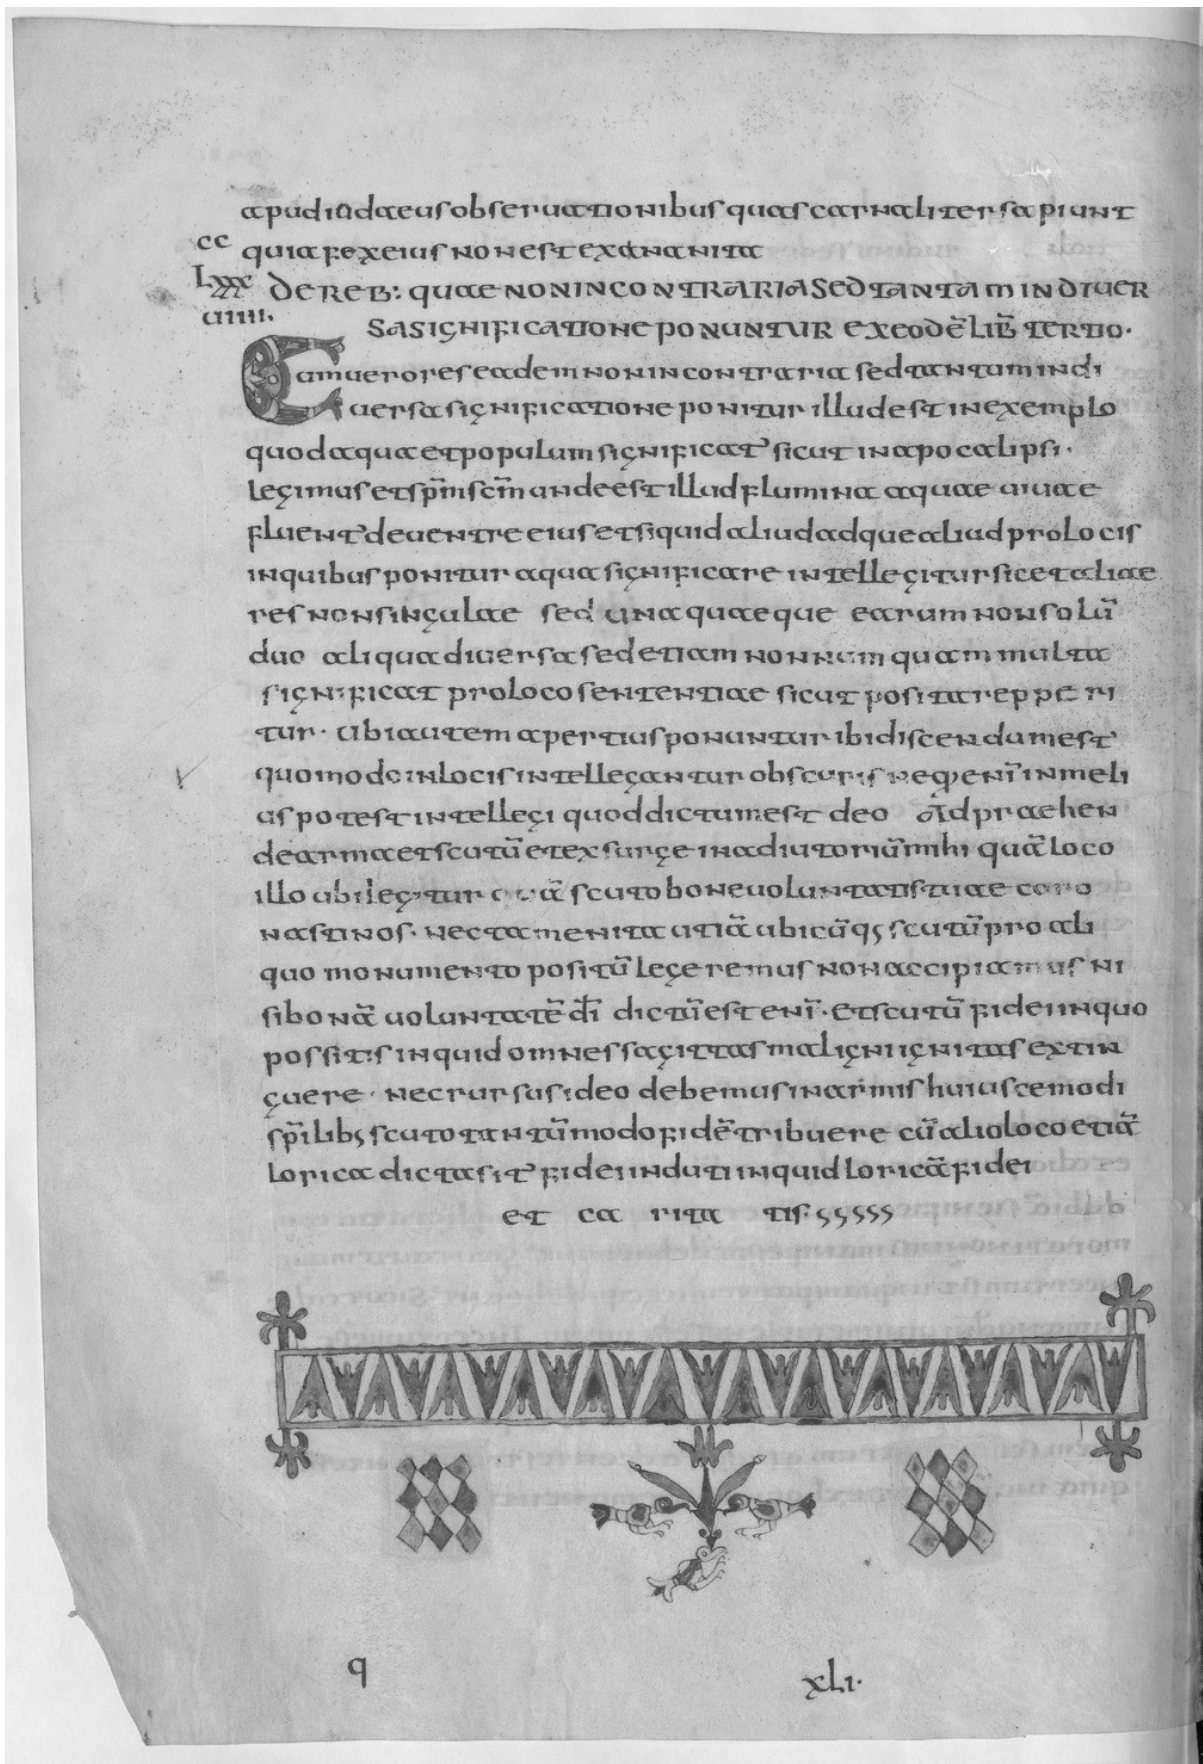 apud iudaeus obseruationibus quas carnaliter sapiunt
CC quia fex eius non est exinanita
LXXX DE REB: QUAE NON IN CONTRARIA SED TANTAM IN DIUER
uiiii. SA SIGNIFICATIONE PONUNTUR EX EODĒ LIB̄ TERTIO·
Cum uero res eadem non in contraria sed tantum in di
uersa significatione ponitur illud est in exemplo
quod aqua et populum significat sicut in apocalipsi·
legimus et sp̄m sc̄m unde est illud flumina aquae uiuae
fluent de uentre eius et si quid aliud adque aliud pro locis
in quibus ponitur aqua significare intellegitur sic et aliae
res non singulae sed una quaeque earum non solū
duo aliqua diuersa sed etiam nonnumquam multa
significat pro loco sententiae sicut posita repperi
tur· ubi autem apertius ponuntur ibi discendum est
quomodo in locis intellegantur obscuris neque enī in meli
us potest intellegi quod dictum est deo Adpraehen
de arma et scutū et exsurge in adiutoriū mihi quā loco
illo ubi legitur quā scuto bone uoluntatis tuae coro
nasti nos· nec tamen ita ut iā ubicūq; scutū pro ali
quo monumento positū legeremus non accipiamus ni
si bonā uoluntatē dī dictū est enī· et scutū fidei in quo
possitis inquid omnes sagittas maligni ignitas extin
guere· nec rursus ideo debemus in armis huiuscemodi
sp̄ilib; scuto tantūmodo fidē tribuere cū alio loco etiā
lorica dicta sit fidei induti inquid loricā fidei
et ca rita tis· sssss
q XLI·